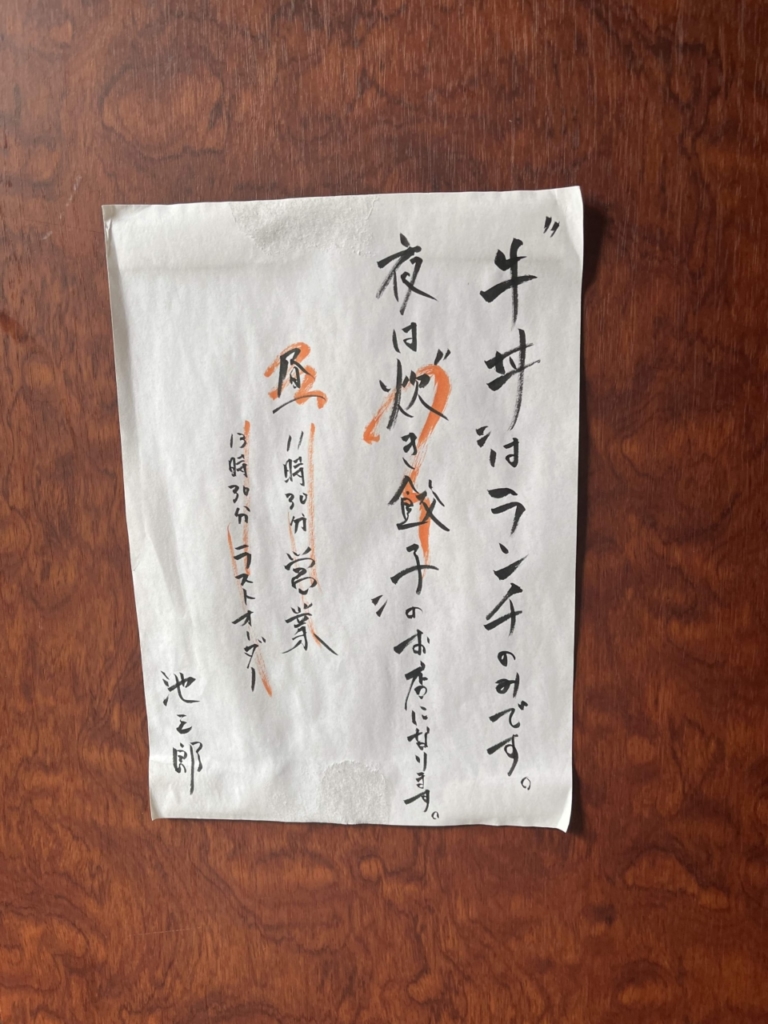 〃牛丼〃はランチのみです。
夜は〃炊き餃子〃のお店になります。
昼 11時30分 営業
13時30分 ラストオーダー
池三郎